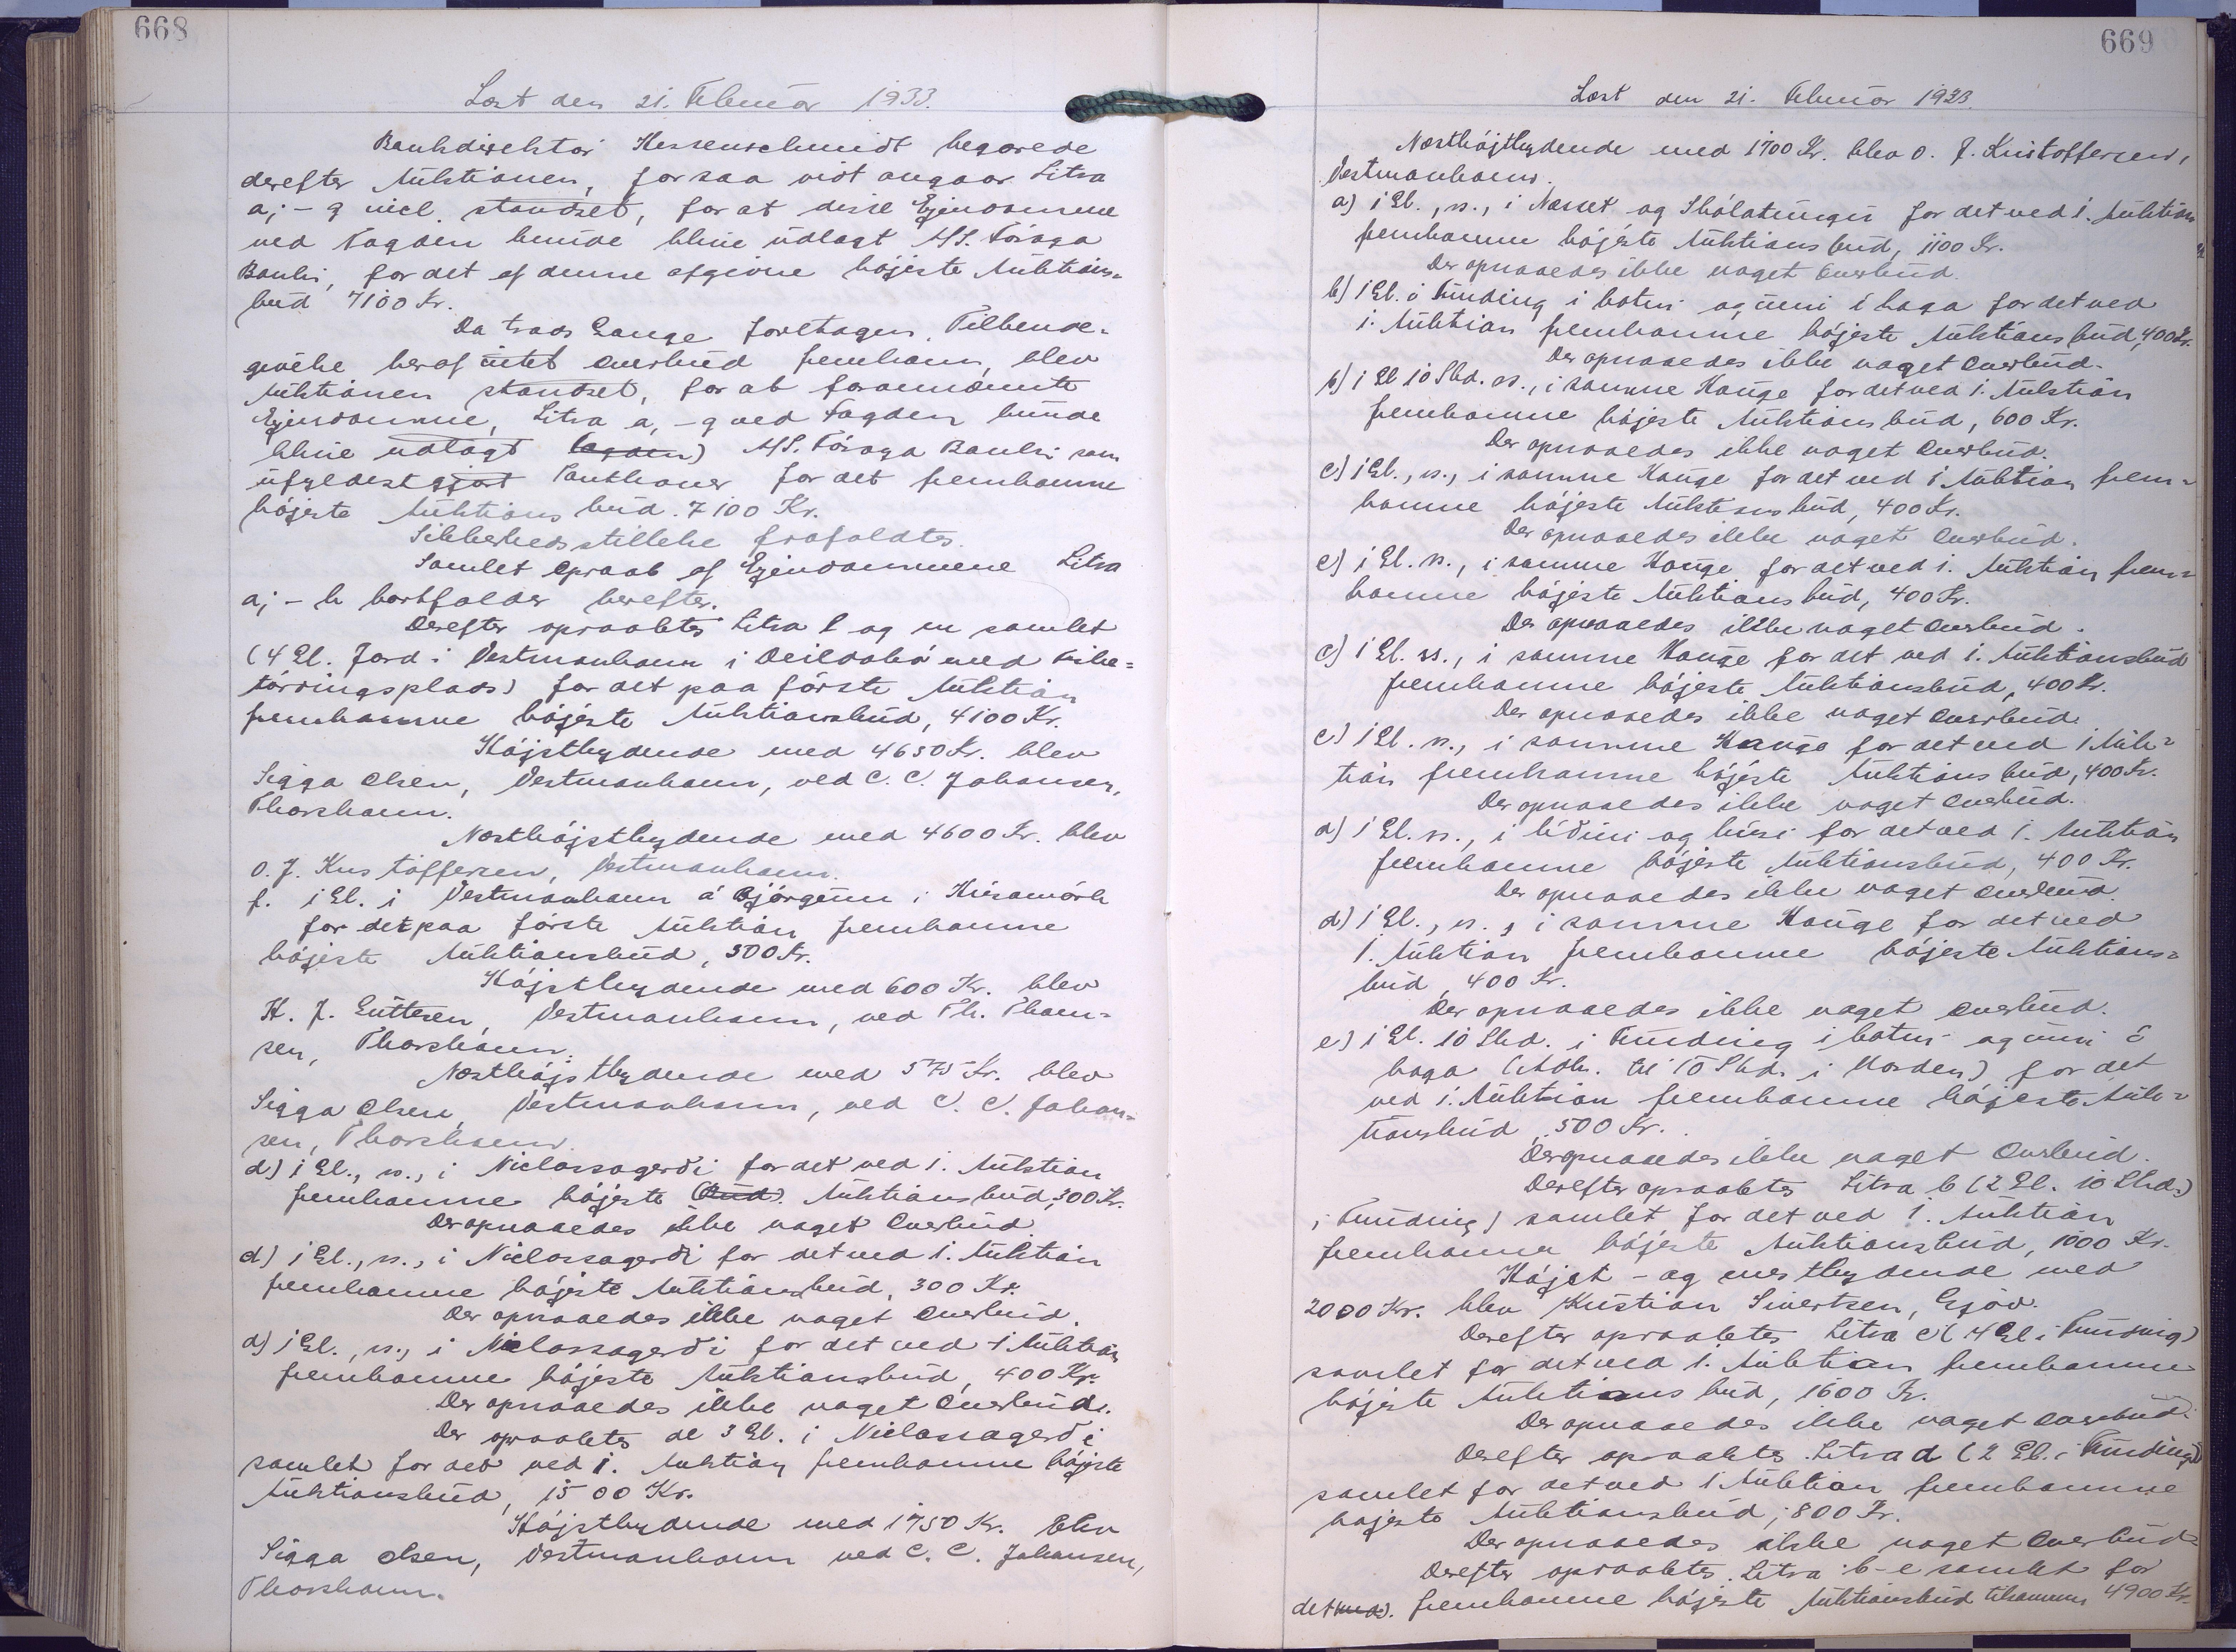 668
Læst den 21. Februar 1933.
Bankdirektør Kessenschmidt begærede
derefter Auktionen, forsaa vidt angaar Litra
a, - g incl. standset, for at disse Ejendomme
ved Fogden kunde blive udlagt A/S. Føroya
Banki, for det af denne afgivne højeste Auktions-
bud 7100 Kr.
Da trods Gange foretagen Tilkende-
givelse heraf intet Overbud fremkom, blev
Auktionen standset, for at forannævnte
Ejendomme, Litra a, - g ved Fogden kunde
blive udlagt A/S. Føroya Banki som
ufyldestgjort Panthaver for det fremkomne
højeste Auktionsbud. 7100 Kr.
Sikkerhedsstillelse frafaldtes.
Samlet Opraab af Ejendommene Litra
a, - h bortfalder herefter.
Derefter opraabtes Litra l og m samlet
(4 Gl. Jord i Vestmanhavn i med Fiske-
tørringsplads) for det paa første Auktion
fremkomne højeste Auktionsbud, 4100 Kr.
Højstbydende med 4650 Kr. blev
Sigga Olsen, Vestmanhavn, ved C. C. Johansen,
Thorshavn.
Næsthøjstbydende med 4600 Kr. blev
O. J. Kristoffersen, Vestmanhavn.
f. 1 Gl. i Vestmanhavn á Bjørgum i Húsamørk
for det paa første Auktion fremkomne
højeste Auktionsbud, 500 Kr.
Højstbydende med 600 Kr. blev
K. J. Guttesen, Vestmanhavn, ved Th. Thom-
sen, Thorshavn.
Næsthøjstbydende med 575 Kr. blev
Sigga Olsen, Vestmanhavn, ved C. C. Johan-
sen, Thorshavn.
d) 1 Gl., n., i Niclassagerði for det ved 1. Auktion
fremkomne højeste (Bud) Auktionsbud, 300 Kr.
Der opnaaedes ikke noget Overbud
d) 1 Gl., n., i Niclassagerði for det ved 1. Auktion
fremkomne højeste Auktionsbud, 300 Kr.
Der opnaaedes ikke noget Overbud.
d) 1 Gl., n., i Niclassagerði for det ved 1 Auktion
fremkomne højeste Auktionsbud, 400 Kr.
Der opnaaedes ikke noget Overbud.
Der opraabtes de 3 Gl. i Niclassagerði
samlet for det ved 1. Auktion fremkomne højeste
Auktionsbud, 1500 Kr.
Højstbydende med 1750 Kr. blev
Sigga Olsen, Vestmanhavn ved C. C. Johansen,
Thorshavn.
669
Læst den 21. Februar 1933.
Næsthøjstbydende med 1700 Kr. blev O. J. Kristoffersen,
Vestmanhavn.
a) 1 Gl., n., i Nesset og for det ved 1. Auktion
fremkomne højeste Auktionsbud, 1100 Kr.
Der opnaaedes ikke noget Overbud.
b) 1 Gl. i Funding i botni og uni í haga for det ved
1. Auktion fremkomne højeste Auktionsbud, 400 Kr.
Der opnaaedes ikke noget Overbud.
b) 1 Gl 10 Skd. n., i samme Hauge for det ved 1. Auktion
fremkomne højeste Auktionsbud, 600 Kr.
Der opnaaedes ikke noget Overbud.
c) 1 Gl., n., i samme Hauge for det ved 1 Auktion frem-
komne højeste Auktionsbud, 400 Kr.
Der opnaaedes ikke noget Overbud.
c) 1 Gl. n., i samme Hauge for det ved 1. Auktion frem-
komne højeste Auktionsbud, 400 Kr.
Der opnaaedes ikke noget Overbud.
c) 1 Gl. n., i samme Hauge for det ved 1. Auktionsbud
fremkomne højeste Auktionsbud, 400 Kr.
Der opnaaedes ikke noget Overbud.
c) 1 Gl. n., i samme Hauge for det ved 1 Auk-
tion fremkomne højeste Auktionsbud, 400 Kr.
Der opnaaedes ikke noget Overbud.
d) 1 Gl. n., i og húsi for det ved 1. Auktion
fremkomne højeste Auktionsbud, 400 Kr.
Der opnaaedes ikke noget Overbud.
d) 1 Gl., n., i samme Hauge for det ved
1. Auktion fremkomne højeste Auktions-
bud, 400 Kr.
Der opnaaedes ikke noget Overbud.
e) 1 Gl. 10 Skd. i Funding i botni og uni í
haga (Adk. til 10 Skd. i Norden) for det
ved 1. Auktion fremkomne højeste Auk-
tionsbud, 500 Kr.
Der opnaaedes ikke noget Overbud.
Derefter opraabtes Litra b (2 Gl. 10 Skd.)
i Funding) samlet for det ved 1. Auktion
fremkomne højeste Auktionsbud, 1000 Kr.
Højst - og enestbydende med
2000 Kr. blev Kristian Sivertsen, Gjov.
Derefter opraabtes Litra c (4 Gl i Funding)
samlet for det ved 1. Auktion fremkomne
højeste Auktionsbud, 1600 Kr.
Der opnaaedes ikke noget Overbud.
Derefter opraabtes Litra d (2 Gl. i Funding)
samlet for det ved 1 Auktion fremkomne
højeste Auktionsbud, 800 Kr.
Der opnaaedes ikke noget Overbud.
Derefter opraabtes Litra b-e samlet for
det (ved) fremkomne højeste Auktionsbud tilsammen 4900 Kr.